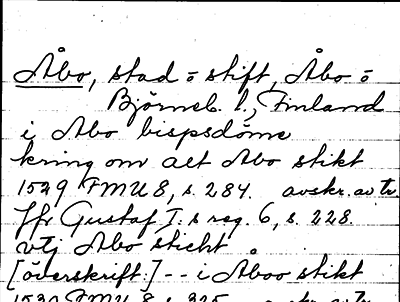 Åbo, stad o stift, Åbo o
Björneb. l., Finland
i Abo bispsdöme
kring om alt Abo stikt
1529 FMU 8, s. 284. avskr. av tr.
Jfr Gustaf I.s reg. 6, s. 228.
vtj Abo sticht
[överskrift.] -- i Åboo stikt
1530 FMU 8 s. 325. avskr. av tr.